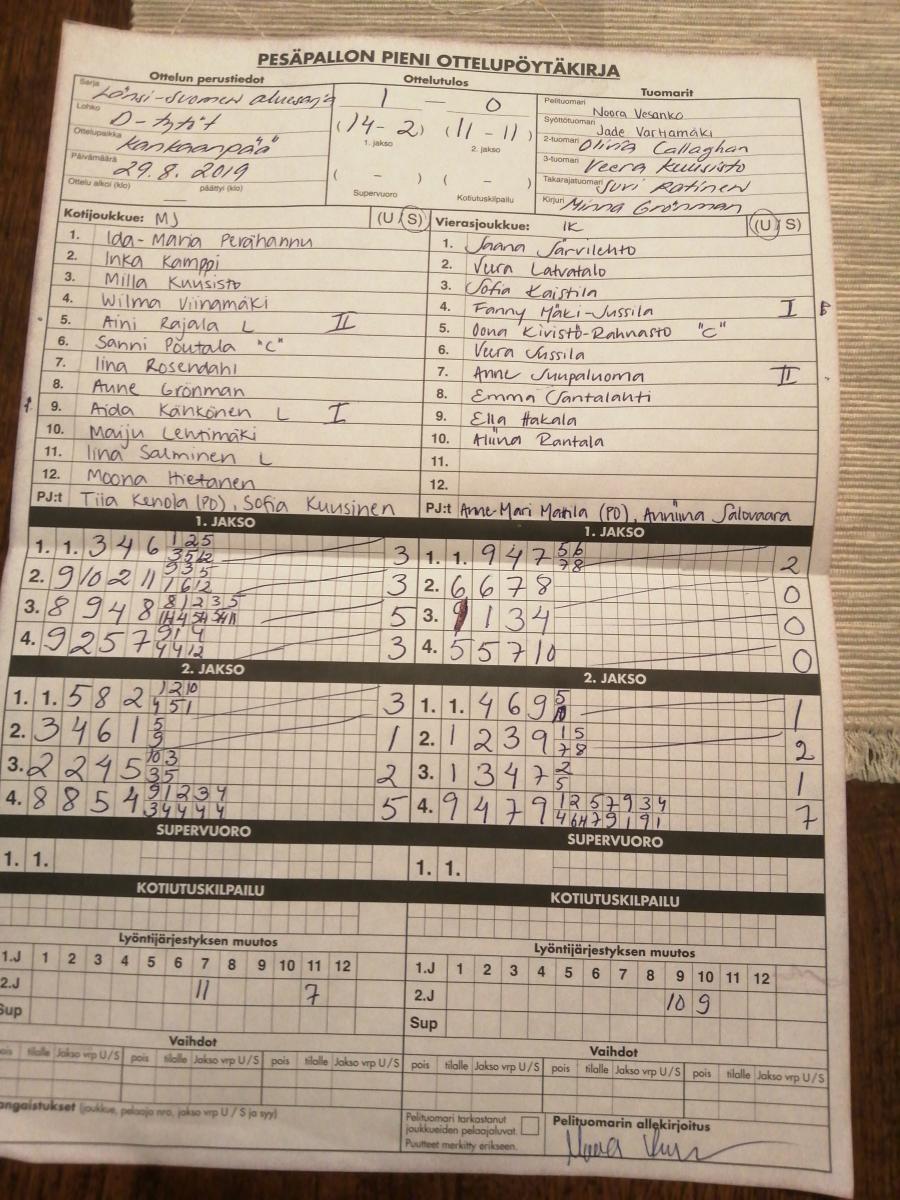 PESÄPALLON PIENI OTTELUPÖYTÄKIRJA
Ottelun perustiedot
Ottelutulos
Tuomarit
Sarja
Länsi-Suomen aluesarja
Lohko
D-tytöt
Ottelupaikka
Kankaanpää
Päivämäärä
29.8.2019
Ottelu alkoi (klo) päättyi (klo)
1 — 0
(14-2) (11-11)
1. jakso 2. jakso
( - ) ( - )
Supervuoro Kotiutuskilpailu
Pelituomari Noora Vesanko
Syöttötuomari Jade Varhamäki
2-tuomari Olivia Callaghan
3-tuomari Veera Kuusisto
Takarajatuomari Juri Ratinen
Kirjuri Minna Grönman
Kotijoukkue: MJ (U/S)
1. Ida-Maria Perähannu
2. Inka Kamppi
3. Milla Kuusisto
4. Wilma Viinamäki
5. Aini Rajala L II
6. Sanni Poutala "C"
7. Iina Rosendahl
8. Aune Grönman
9. Aida Känkönen L I
10. Maiju Lehtimäki
11. Iina Salminen L
12. Moona Hietanen
PJ:t Tiia Kenola (PO), Sofia Kuusinen
Vierasjoukkue: IK (U/S)
1. Jaana Järvilehto
2. Veera Latvatalo
3. Sofia Kaistila
4. Fanny Mäki-Jussila I
5. Oona Kivistö-Rahnasto "C"
6. Veera Jussila
7. Anne Juupaluoma II
8. Emma Santalahti
9. Ella Hakala
10. Aliina Rantala
11.
12.
PJ:t Anne-Mari Mattila (PO), Anniina Salovaara
1. JAKSO
1. 1. 3 4 6 3
2. 9 10 2 11 3
3. 8 9 4 8 5
4. 9 2 5 7 3
1. JAKSO
1. 1. 9 4 7 5 6 7 8 2
2. 6 6 7 8 0
3. 9 1 3 4 0
4. 5 5 7 10 0
2. JAKSO
1. 1. 5 8 2 3
2. 3 4 6 1 5 9 1
3. 2 2 4 5 10 3 3 5 2
4. 8 8 5 4 5
2. JAKSO
1. 1. 4 6 9 5 1
2. 1 2 3 9 1 5 7 8 2
3. 1 3 4 7 2 5 1
4. 9 4 7 9 7
SUPERVUORO
1. 1.
SUPERVUORO
1. 1.
KOTIUTUSKILPAILU
KOTIUTUSKILPAILU
Lyöntijärjestyksen muutos
1.J 1 2 3 4 5 6 7 8 9 10 11 12
2.J 11 7
Sup
Lyöntijärjestyksen muutos
1.J 1 2 3 4 5 6 7 8 9 10 11 12
2.J 10 9
Sup
Vaihdot
tilalle Jakso vrp U/S pois tilalle Jakso vrp U/S pois tilalle Jakso vrp U/S
Vaihdot
pois tilalle Jakso vrp U/S pois tilalle Jakso vrp U/S pois tilalle Jakso vrp U/S
angaistukset (joukkue, pelaaja nro, jakso vrp U / S ja syy)
Pelituomari tarkastanut
joukkueiden pelaajaluvat.
Puutteet merkitty erikseen.
Pelituomarin allekirjoitus